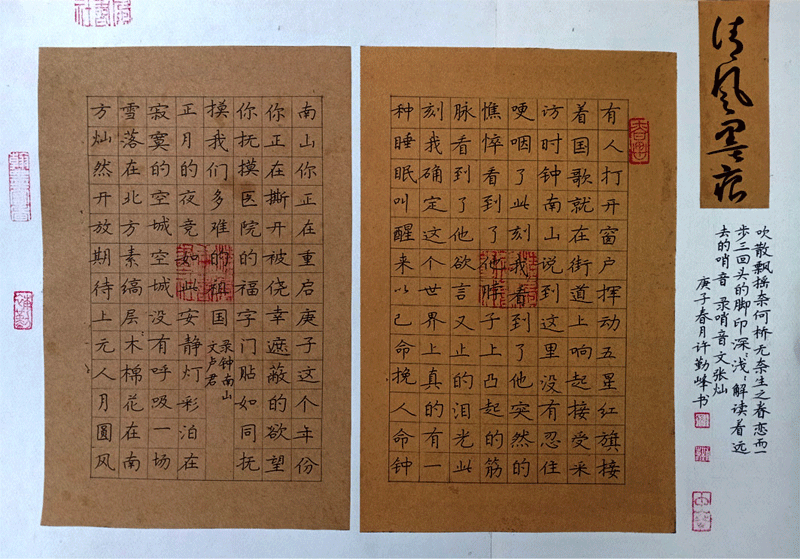 清风墨痕
吹散飘摇奈何桥无奈生之眷恋而一
步三回头的脚印深:浅:解读着远
去的哨音 录哨音 文张灿
庚子春月许勤峰书
有人打开窗户挥动五星红旗接
着国歌就在街道上响起接受采
访时钟南山说到这里没有忍住
哽咽了此刻我看到了他突然的
憔悴看到了他脖子上凸起的筋
脉看到了他欲言又止的泪光此
刻我确定这个世界上真的有一
种睡眠叫醒来以己命挽人命钟
南山你正在重启庚子这个年份
你正在撕开被侥幸遮蔽的欲望
你抚摸医院的福字门贴如同抚
摸我们多难的祖国
录钟南山
文卢君
正月的夜竟如此安静灯彩泊在
寂寞的空城空城没有呼吸一场
雪落在北方素缟层:木棉花在南
方灿然开放期待上元人月圆风